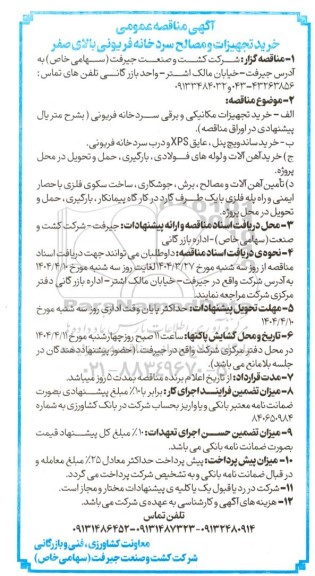 آگهی مناقصه عمومی
خرید تجهیزات و مصالح سردخانه فریونی بالای صفر
۱- مناقصه گزار: شرکت کشت و صنعت جیرفت (سهامی خاص) به
آدرس جیرفت- خیابان مالک اشتر- واحد بازرگانی تلفن های تماس:
۴۳۲۶۳۸۵۶-۰۳۴ و ۰۹۱۳۳۴۸۴۰۳۲
۲- موضوع مناقصه:
الف - خرید تجهیزات مکانیکی و برقی سردخانه فریونی ( بشرح متریال
پیشنهادی در اوراق مناقصه).
ب - خرید ساندویچ پنل، عایق XPS و درب سردخانه فریونی.
ج) خرید آهن آلات و لوله های فولادی، بارگیری، حمل و تحویل در محل
پروژه.
د) تأمین آهن آلات و مصالح، برش، جوشکاری، ساخت سکوی فلزی با حصار
ایمنی و راه پله فلزی با یک طرف گارد در کارگاه پیمانکار، بارگیری، حمل و
تحویل در محل پروژه.
۳- محل دریافت اسناد مناقصه و ارائه پیشنهادات: جیرفت- شرکت کشت و
صنعت (سهامی خاص) - اداره بازرگانی
۴- نحوه ی دریافت اسناد مناقصه: داوطلبان می توانند جهت دریافت اسناد
مناقصه از روز سه شنبه مورخ ۱۴۰۴/۳/۲۷ لغایت روز سه شنبه مورخ ۱۴۰۴/۴/۱۰
به آدرس شرکت واقع در جیرفت- خیابان مالک اشتر - اداره بازرگانی دفتر
مرکزی شرکت مراجعه نمایند.
۵- مهلت تحویل پیشنهادات: حداکثر پایان وقت اداری روز سه شنبه مورخ
۱۴۰۴/۴/۱۰
۶- تاریخ و محل گشایش پاکتها: ساعت ۱۱ صبح روز چهارشنبه مورخ ۱۴۰۴/۴/۱۱
در محل دفتر مرکزی شرکت واقع در جیرفت. (حضور پیشنهاددهندگان در
جلسه بلامانع می باشد).
۷- مدت قرارداد: از تاریخ اعلام برنده مناقصه بمدت ۵ روز میباشد.
۸- میزان تضمین فرایند اجرای کار: برابر با ۱۰٪ مبلغ پیشنهادی بصورت
ضمانت نامه معتبر بانکی و یا واریز بحساب شرکت در بانک کشاورزی به شماره
۸۴۰۶۵۰۹۸۴
۹- میزان تضمین حسن اجرای تعهدات: ۱۰٪ مبلغ کل پیشنهاد قیمت
بصورت ضمانت نامه بانکی می باشد.
۱۰- میزان پیش پرداخت: پیش پرداخت حداکثر معادل ۲۵٪ مبلغ معامله و
در قبال ضمانت نامه بانکی و به تشخیص شرکت پرداخت می گردد.
۱۱- شرکت در رد یا قبول یک یا کلیه ی پیشنهادات مختار و مجاز است.
۱۲- هزینه های آگهی و کارشناسی به عهده ی شرکت می باشد.
تلفن تماس
۰۹۱۳۲۴۸۰۹۱۴-۰۹۱۳۱۴۸۷۳۲۳-۰۹۱۳۱۴۸۶۴۵۲
معاونت کشاورزی، فنی و بازرگانی
شرکت کشت و صنعت جیرفت (سهامی خاص)